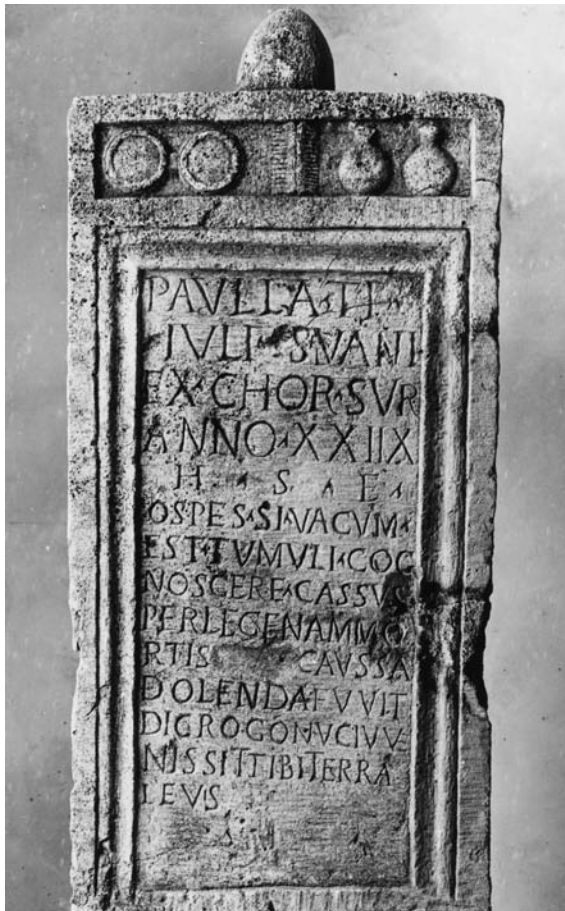 PAVLLA·TI·
IVLI·SVANI
EX·CHOR·SVR
ANNO·XXIIX
H·S·E·
OSPES·SI·VACVM·
EST·TVMVLI·COG
NOSCERE·CASSVS
PERLEGENAMMO
RTIS CAVSSA
DOLENDAFVVIT
DIGROGONVCIVV
NISSITTIBITERRA
LEVIS